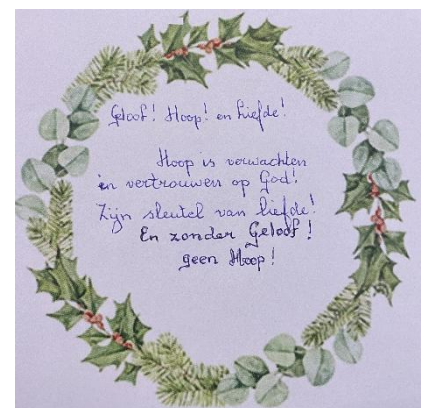 Geloof! Hoop! en Liefde!
Hoop is verwachten
in vertrouwen op God!
Zijn sleutel van liefde!
En zonder Geloof!
geen Hoop!